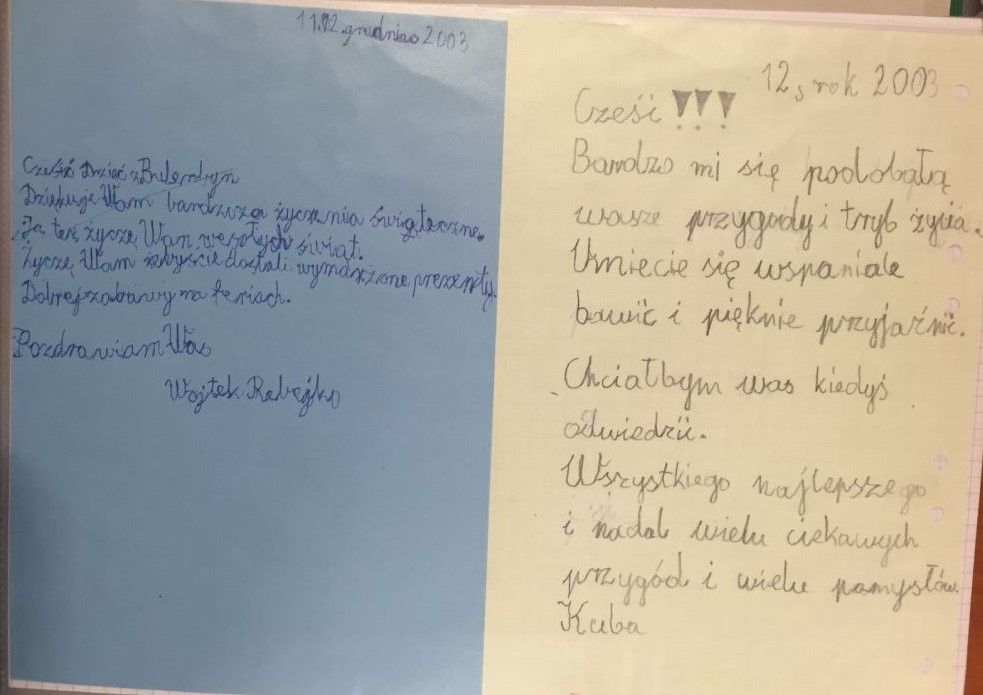 11.12.grudniao 2003
Cześć Dzieci z Bulerbyn
Dziękuje Wam bardzo za życzenia świąteczne.
Ja też życzę Wam wesołych świąt.
Życzę Wam żebyście dostali wymarzone prezenty.
Dobrej zabawy na feriach.
Pozdrawiam Was
Wojtek
12, rok 2003
Cześć !!!
Bardzo mi się podobają
wasze przygody i tryb życia.
Umiecie się wspaniale
bawić i pięknie przyjaźnić.
Chciałbym was kiedyś
odwiedzić.
Wszystkiego najlepszego
i nadal wielu ciekawych
przygód i wielu pomysłów.
Kuba